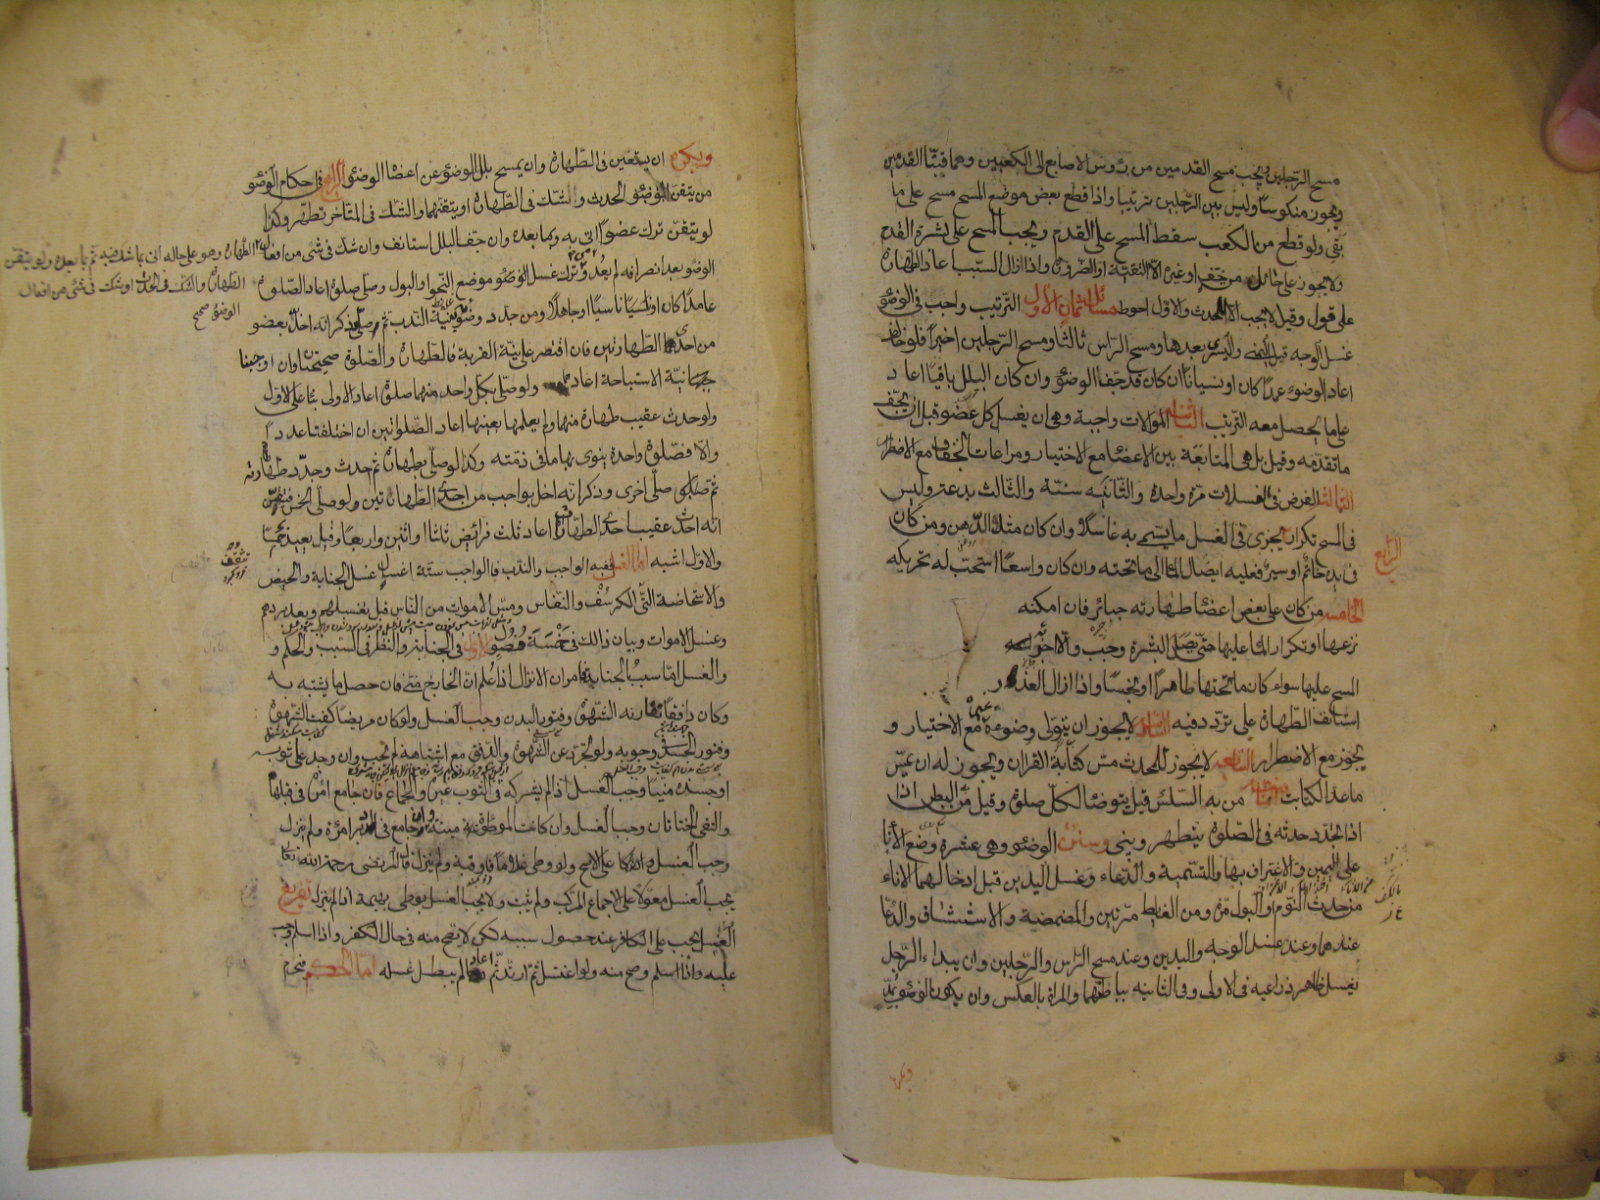 مسح الرجلين ويجب مسح القدمين من رؤس الاصابع الى الكعبين وهما قبتا القدمين
ويجوز منكوسا وليس بين الرجلين ترتيب واذا قطع بعض موضع المسح مسح على ما
بقى ولو قطع من الكعب سقط المسح على القدم ويجب المسح على بشرة القدم
ولا يجوز على حائل من خف او غيره الا للتقية او الضرورة واذا زال السبب اعاد الطهارة
على قول وقيل لا يجب الا لحدث والاول احوط مسائل ثمان الاولى الترتيب واجب فى الوضوء
غسل الوجه قبل اليمنى واليسرى بعدها ومسح الراس ثالثا ومسح الرجلين اخيرا فلو خالف
اعاد الوضوء عمدا كان او نسيانا ان كان قد جف الوضوء وان كان البلل باقيا اعاد
على ما يحصل معه الترتيب الثانيه الموالات واجبة وهى ان يغسل كل عضو قبل ان يجف
ما تقدمه وقيل بل هى المتابعة بين الاعضا مع الاختيار ومراعات الجفاف مع الاضطرار
الثالثه الفرض فى الغسلات مرة واحدة والثانيه سنة والثالث بدعة وليس
فى المسح تكرار يجزى فى الغسل ما يسمى به غاسلا وان كان مثل الدهن ومن كان
الرابع
فى يده خاتم او سير فعليه ايصال الما الى ما تحته وان كان واسعا استحب له تحريكه
الخامسه من كان على بعض اعضا طهارته جبائر فان امكنه
نزعها او تكرار الما عليها حتى يصل البشرة وجب والا اجزئه
المسح عليها سواء كان ما تحتها طاهرا او نجسا واذا زال العذر
استانف الطهارة على تردد فيه السادسه لا يجوز ان يتولى وضوءه غيره مع الاختيار و
يجوز مع الاضطرار السابعه لا يجوز للمحدث مس كتابة القران ويجوز له ان يمس
ما عدا الكتابة الثامنه من به السلس قيل يتوضا لكل صلوة وقيل من به البطن اذا
اذا تجدد حدثه فى الصلوة يتطهر ويبنى وسنن الوضوء وهى عشرة وضع الأنا
على اليمين والاغتراف بها والتسمية والدعاء وغسل اليدين قبل ادخالهما الاناء
من حدث النوم والبول مرة ومن الغايط مرتين والمضمضة والاستنشاق والدعا
عندهما وعند غسل الوجه واليدين وعند مسح الراس والرجلين وان يبداء الرجل
بغسل ظاهر ذراعيه فى الاولى وفى الثانيه بباطنهما والمراة بالعكس وان يكون الوضوء بمد
ويكره
ويكره ان يستعين فى الطهارة وان يمسح بلل الوضوء عن اعضا الوضوء الرابع فى احكام الوضوء
من يتقن الحدث والشك فى الطهارة او يتقنهما والشك فى المتاخر تطهر وكذا
لو يتقن ترك عضو اتى به وبما بعده وان جف البلل استانف وان شك فى شئ من افعال
الطهارة وهو على حاله اتى بما شك فيه ثم بما بعده ولو يتقن
الطهارة والشك فى الحدث او شك فى شئ من افعال
الوضوء صح
الوضوء بعد انصرافه لم يعد ومن ترك غسل موضع النجو او البول وصلى صلوة اعاد الصلوة
عامدا كان او ناسيا او جاهلا ومن جدد وضوء بنية الندب ثم صلى وذكر انه اخل بعضو
من احدى الطهارتين فان اقتصر على نية القربة فالطهارة والصلوة صحيحتان وان اوجبنا
نية الاستباحة اعاد ولو صلى بكل واحد منهما صلوة اعاد الاولى بنا على الاول
ولو حدث عقيب طهارة منهما ولم يعلمها بعينها اعاد الصلوتين ان اختلفتا عددا
والا فصلوة واحدة ينوى بها ما فى ذمته وكذا لو صلى بطهارة ثم حدث وجدد طهارته
ثم صلى اخرى وذكر انه اخل بواجب من احدى الطهارتين ولو صلى الخمس فتيقن
انه احدث عقيب احدى الطهارات اعاد ثلث فرائض ثلثا واثنين واربعا وقيل يعيد خمسا
والاول اشبه اما الغسل ففيه الواجب والندب فالواجب ستة اغسال غسل الجنابة والحيض
والاستحاضة التى الكرسف والنفاس ومس الاموات من الناس قبل تغسيلهم وبعد بردهم
وغسل الاموات وبيان ذالك فى خمسة فصول الاول فى الجنابة والنظر فى السبب والحكم و
والغسل اما سبب الجنابة فامران الانزال اذا علم ان الخارج منى فان حصل ما يشتبه به
وكان دافقا يقارنه الشهوة وفتور البدن وجب الغسل ولو كان مريضا كفت الشهوة
وفتور الجسد فى وجوبه ولو تجرد عن الشهوة والدفق مع اشتباهه لم يجب وان وجد على ثوبه
او جسده منيا وجب الغسل اذا لم يشركه فى الثوب غيره والجماع فان جامع امراة فى قبلها
والتقى الختانان وجب الغسل وان كانت الموطوئة ميتة وان جامع فى الدبر امرءة ولم ينزل
وجب الغسل على الاصح ولو وطى غلاما فاوقبه ولم ينزل قال المرتضى رحمه الله تعا
يجب الغسل معولا على الاجماع المركب ولم يثبت ولا يجب الغسل بوطى بهيمة اذا لم ينزل تفريع
الغسل يجب على الكافر عند حصول سببه لكن لا يصح منه فى حال الكفر واذا اسلم وجب
عليه واذا اسلم وصح منه ولو اغتسل ثم ارتد ثم عاد لم يبطل غسله اما الحكم فيحرم